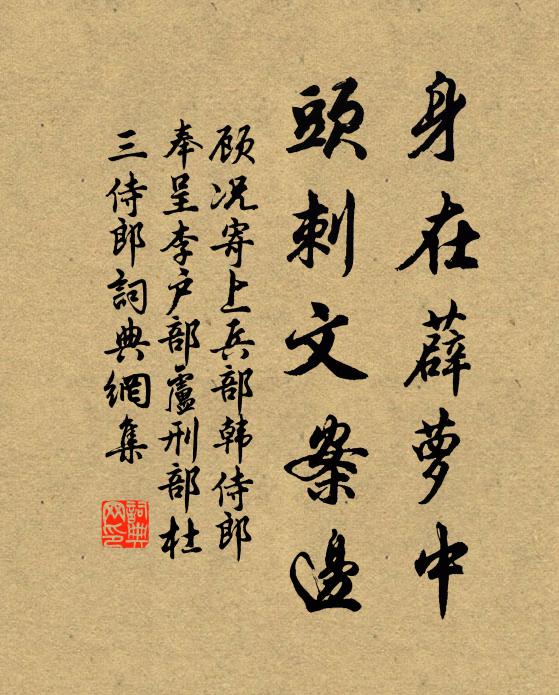 身在薜萝中
頭刺文案邊
顾况寄上兵部韩侍郎
奉呈李户部盧刑部杜
三侍郎詞典網集
詞典
网印